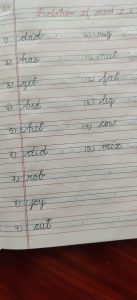 Dictation of word
1) dad
2) has
3) get
4) bed
5) hit
6) did
7) rob
8) joy
9) cut
10) mug
11) nut
12) fat
13) lig
14) cow
15) mix